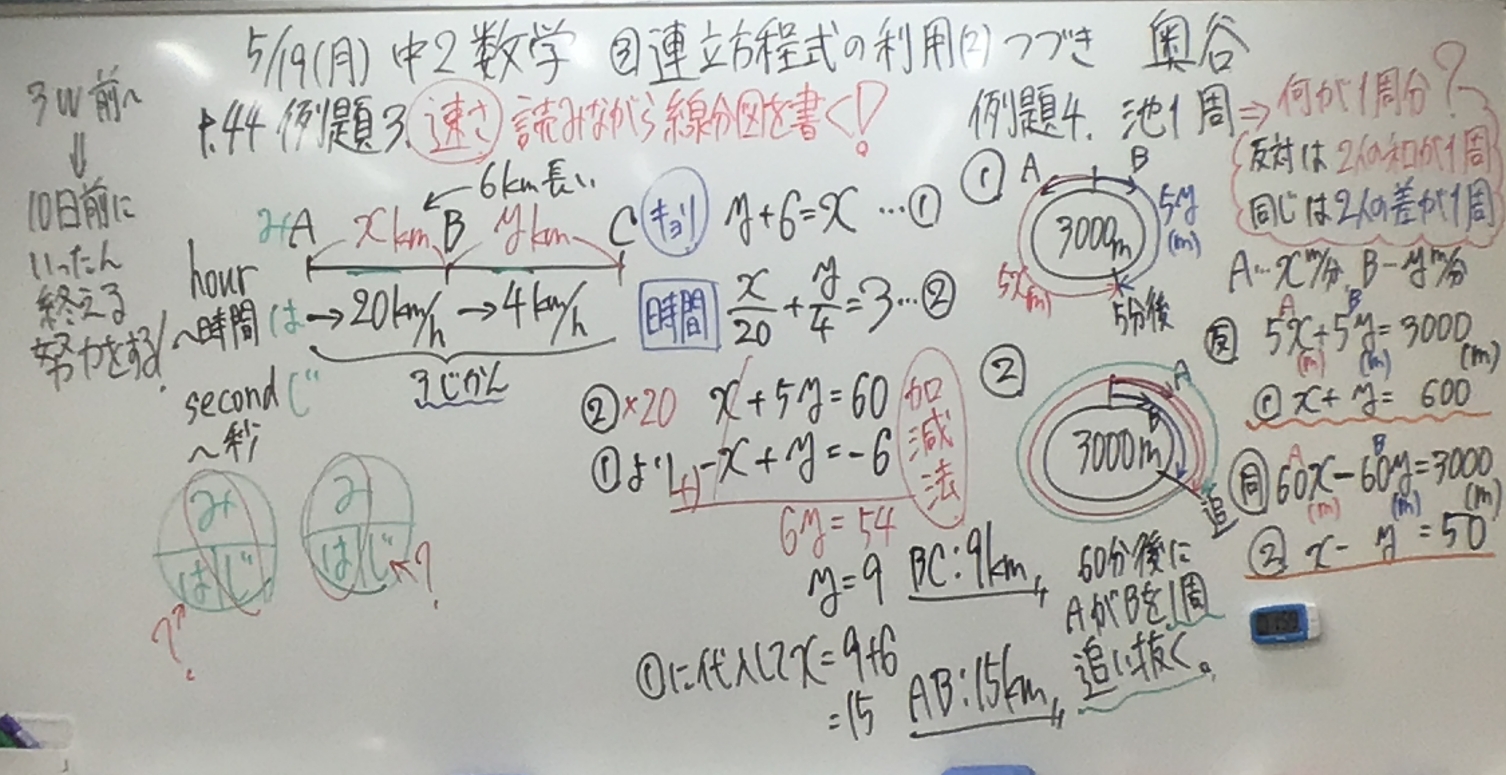 5/19(月) 中2数学 ③連立方程式の利用(2) つづき 奥谷
3W前〜
⇓
10日前に
いったん
終える
努力をする!
P.44 例題3. 速さ 読みながら線分図を書く!
6km長い
み A xkm B ykm C
hour
〜時間 は →20km/h →4km/h
3じかん
second じ
〜秒
み み
はじ はじ
? ?
キョリ y+6=x …①
時間 x/20+y/4=3…②
②×20 x+5y=60
①より +) -x+y=-6
加減法
6y=54
y=9 BC:9km
①に代入してx=9+6
=15 AB:15km
例題4. 池1周⇒何が1周分?
反対は2人の和が1周
同じは2人の差が1周
① A B
3000m
5x(m) 5y(m)
5分後
② A
B
3000m
追
60分後に
AがBを1周
追い抜く。
A…xm/分 B…ym/分
A B
反 5x+5y=3000
(m) (m) (m)
① x+y=600
A B
同 60x-60y=3000
(m) (m) (m)
② x-y=50